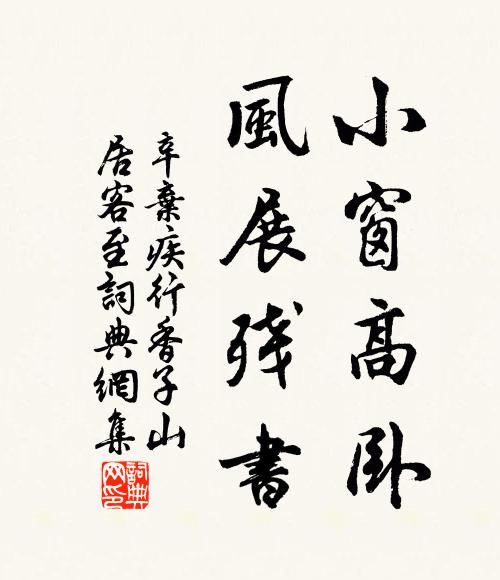 小窗高卧
風展残書
辛棄疾行香子山
居客至詞典網集
詞典网印